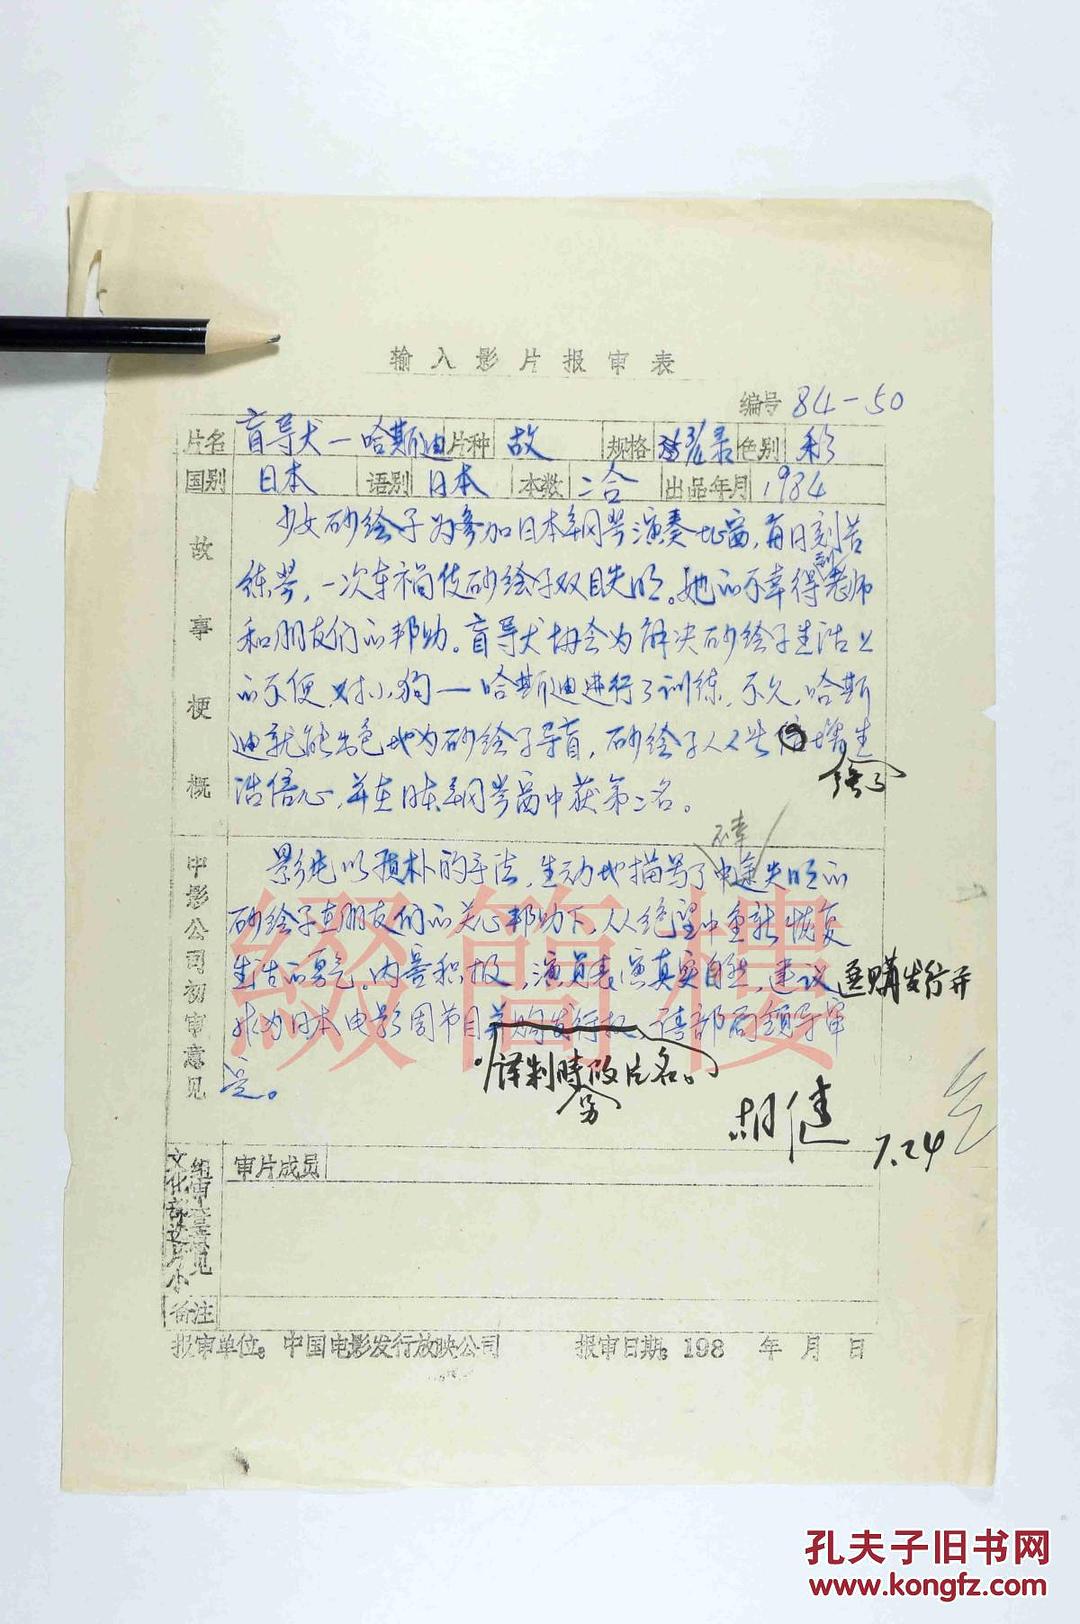 输入影片报审表
编号 84-50
片名 盲导犬—哈斯迪 片种 故 规格 色别 彩
国别 日本 语别 日本 本数 二合 出品年月 1984
故事梗概
少女砂绘子为参加日本钢琴演奏比赛,每日刻苦
练琴,一次车祸使砂绘子双目失明。她的不幸得到老师
和朋友们的帮助。盲导犬协会为解决砂绘子生活上
的不便,对小狗—哈斯迪进行了训练,不久,哈斯
迪就能出色地为砂绘子导盲,砂绘子从此增强了生
活信心,并在日本钢琴赛中获第二名。
中影公司初审意见
影片以预朴的手法,生动地描写了不幸失明的
砂绘子在朋友们的关心帮助下,从绝望中重新恢复
生活的勇气。内容积极,演员表演真实自然,建议选购发行并
作为日本电影周节目并购发行权,请部局领导审
定。
译制时另改片名。
胡健 7.24
文化部选片小组审查意见
审片成员
备注
报审单位:中国电影发行放映公司 报审日期:198 年 月 日
經簡樓
孔夫子旧书网
www.kongfz.com